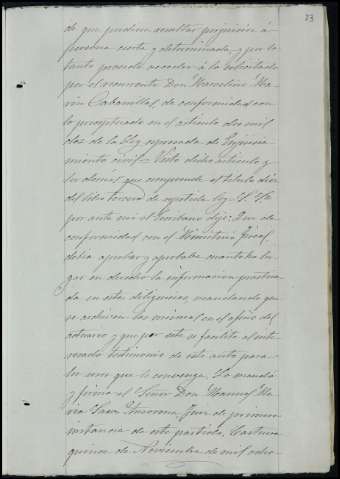 23
de que pudiera resultar perjuicio á
persona cierta y determinada, y por lo
tanto procede acceder á lo solicitado
por el recurrente Don Marcelino
Cabanillas de conformidad con
lo preceptuado en el artículo dos mil
dos de la Ley reformada de Enjuicia-
miento civil. Visto dicho artículo y
los demás que comprende el título diez
del libro tercero de repetida ley, S. Sa
por ante mi el Escribano dijo: Que de
conformidad con el Ministerio fiscal,
debia aprobar y aprobaba cuanto ha lu-
gar en derecho la informacion practica-
da en estas diligencias, mandando que
se archiven las mismas en el oficio del
actuario y que por este se facilite al inte-
resado testimonio de este auto para
los usos que le convenga. Lo mandó
y firma el Señor Don Manuel Ma-
ria Juez de primera
instancia de este partido, Castuera
quince de Noviembre de mil ocho-